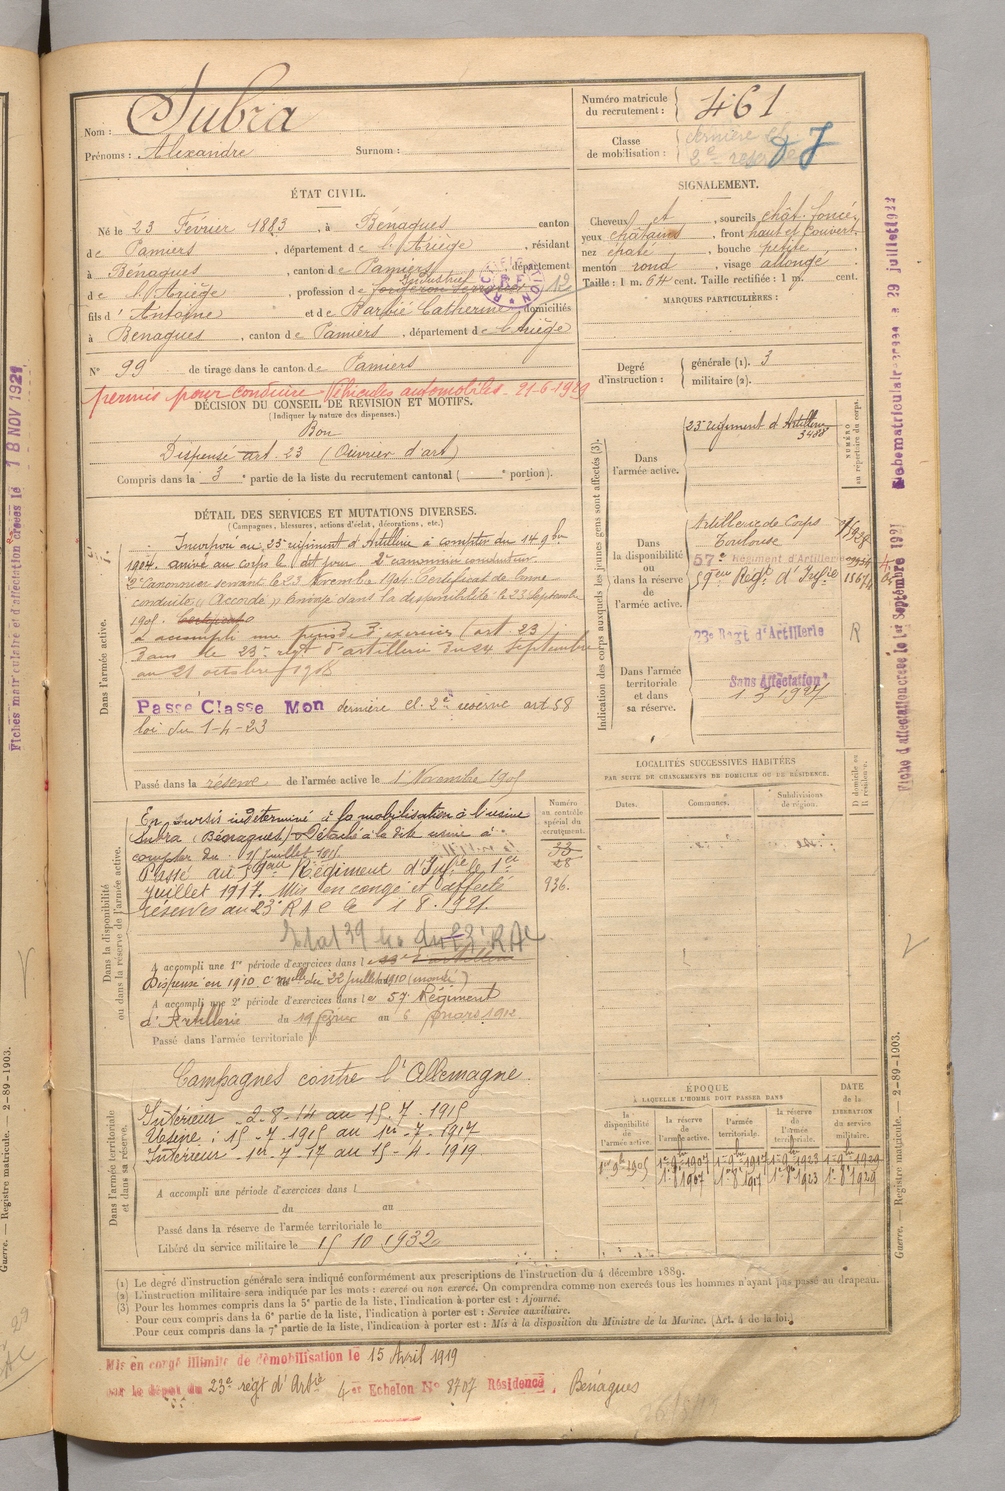 Nom : Subra
Prénoms : Alexandre Surnom :
Numéro matricule du recrutement : 461
Classe de mobilisation : dernière cl. 2e réserve DJ
ÉTAT CIVIL.
Né le 23 Février 1883, à Bénagues canton
de Pamiers, département de l'Ariège, résidant
à Bénagues, canton de Pamiers, département
de l'Ariège, profession de Industriel 12
fils d'Antoine et de Barbié Catherine, domiciliés
à Benagues, canton de Pamiers, département de l'Ariège
N° 99 de tirage dans le canton de Pamiers
permis pour conduire Véhicules automobiles. 21-6-1929
SIGNALEMENT.
Cheveux et, sourcils chât. foncé,
yeux châtains, front haut et couvert,
nez épaté, bouche petite
menton rond, visage allongé
Taille : 1 m. 64 cent. Taille rectifiée : 1 m. cent.
MARQUES PARTICULIÈRES :
Degré d'instruction : générale (1). 3
militaire (2).
DÉCISION DU CONSEIL DE REVISION ET MOTIFS.
(Indiquer la nature des dispenses.)
Bon
Dispensé art. 23 (Ouvrier d'art)
Compris dans la 3e partie de la liste du recrutement cantonal ( e portion).
DÉTAIL DES SERVICES ET MUTATIONS DIVERSES.
(Campagnes, blessures, actions d'éclat, décorations, etc.)
Dans l'armée active.
Incorporé au 23e régiment d'Artillerie à compter du 14 9bre
1904. arrivé au corps le dit jour. 2e canonnier conducteur
2e Canonnier servant le 23 novembre 1904. Certificat de bonne
conduite "Accordé". Envoyé dans la disponibilité le 23 Septembre
1905. Certificat
A accompli une période d'exercices (art. 23)
dans le 23e régt d'artillerie du 24 Septembre
au 21 octobre 1908
Passé Classe Mon dernière cl. 2e réserve art 58
loi du 1-4-23
Passé dans la réserve de l'armée active le 1er Novembre 1905
Dans la disponibilité ou dans la réserve de l'armée active.
En sursis indéterminé à la mobilisation à l'usine
Subra (Bénagues). Détaché à la dite usine à
compter du 15 Juillet 1915.
Passé au 59eme Régiment d'Infie le 1er
Juillet 1917. Mis en congé et affecté
réserves au 23e RAC le 1 8. 1921.
du 23e RAC
A accompli une 1re période d'exercices dans le
Dispensé en 1910 C. melle du 22 Juillet 1910 (inondé)
A accompli une 2e période d'exercices dans le 57e Régiment
d'Artillerie du 19 février au 6 mars 1912
Passé dans l'armée territoriale le
Numéro au contrôle spécial du recrutement.
33
28
936.
Dans l'armée territoriale et dans sa réserve.
Campagnes contre l'Allemagne
Intérieur 2-8-14 au 15.7.1915
Usine : 15-7-1915 au 1er-7-1917
Intérieur 1er-7-17 au 15-4-1919
A accompli une période d'exercices dans l
du au
Passé dans la réserve de l'armée territoriale le
Libéré du service militaire le 15 10 1932
Indication des corps auxquels les jeunes gens sont affectés (3).
NUMÉRO au répertoire du corps.
Dans l'armée active.
23e régiment d'Artillerie
3488
Dans la disponibilité ou dans la réserve de l'armée active.
Artillerie de Corps
Toulouse
57e Régiment d'Artillerie
59eme Régt d'Infie
Dans l'armée territoriale et dans sa réserve.
23e Regt d'Artillerie R
Sans Affectation
1 5 1927
LOCALITÉS SUCCESSIVES HABITÉES
PAR SUITE DE CHANGEMENTS DE DOMICILE OU DE RÉSIDENCE.
Dates. Communes. Subdivisions de région. D domicile ou R résidence.
ÉPOQUE
À LAQUELLE L'HOMME DOIT PASSER DANS
la disponibilité de l'armée active. la réserve de l'armée active. l'armée territoriale. la réserve de l'armée territoriale. DATE de la LIBÉRATION du service militaire.
1er 9bre 1905 1er 9bre 1907 1er 9bre 1917 1er 9bre 1923 1er 9bre 1929
1er 8bre 1907 1er 8bre 1917 1er 8bre 1923 1er 8bre 1929
(1) Le degré d'instruction générale sera indiqué conformément aux prescriptions de l'instruction du 4 décembre 1889.
(2) L'instruction militaire sera indiquée par les mots : exercé ou non exercé. On comprendra comme non exercés tous les hommes n'ayant pas passé au drapeau.
(3) Pour les hommes compris dans la 5e partie de la liste, l'indication à porter est : Ajourné.
Pour ceux compris dans la 6e partie de la liste, l'indication à porter est : Service auxiliaire.
Pour ceux compris dans la 7e partie de la liste, l'indication à porter est : Mis à la disposition du Ministre de la Marine. (Art. 4 de la loi.)
Mis en congé illimité de démobilisation le 15 Avril 1919
sur le dépôt du 23e régt d'Artie 4er Echelon N° 8707 Résidence, Bénagues
Fiches matriculaire et d'affectation créées le 18 NOV 1921
Fiche matriculaire créée le 29 juillet 1922
Fiche d'affectation créée le 1er Septembre 1921
Guerre. — Registre matricule. — 2-89-1903.
Guerre. — Registre matricule. — 2-89-1903.